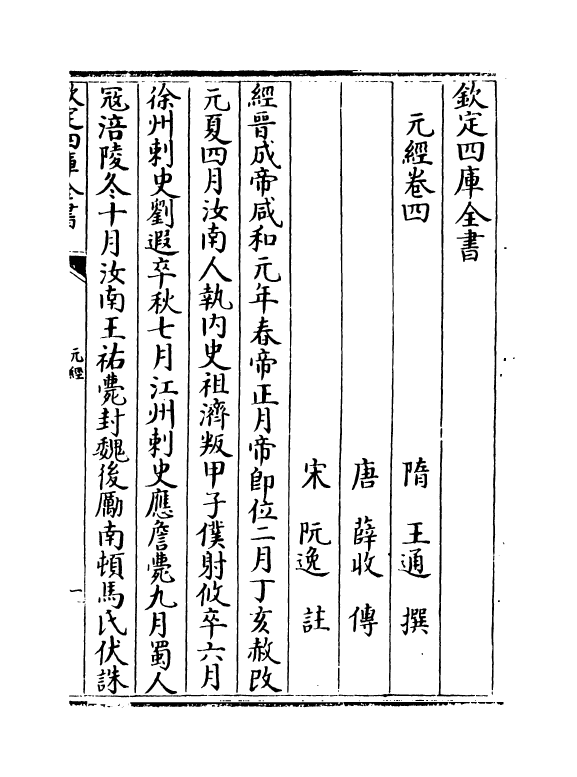 欽定四庫全書
元經卷四
隋　王通　撰
唐　薛收　傳
宋　阮逸　註
經晉成帝咸和元年春帝正月帝即位二月丁亥赦改
元夏四月汝南人執内史祖濟叛甲子僕射攸卒六月
徐州刺史劉遐卒秋七月江州刺史應詹薨九月蜀人
冦涪陵冬十月汝南王祐薨封魏後勵南頓馬氏伏誅
欽定四庫全書
元經
一